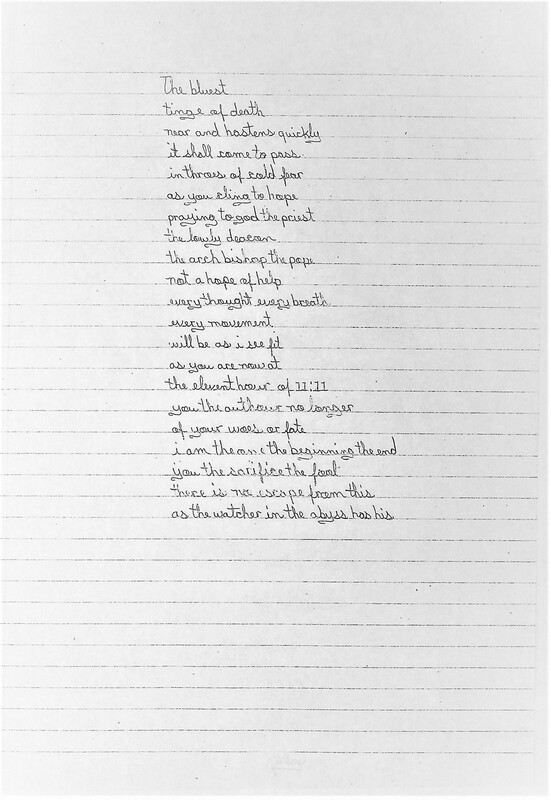 The bluest
tinge of death
near and hastens quickly
it shall come to pass
in throes of cold fear
as you cling to hope
praying to god the priest
the lowly deacon
the arch bishop the pope
not a hope of help
every thought every breath
every movement
will be as i see fit
as you are now at
the elevent hour of 11:11
you the authour no longer
of your woes or fate
i am the one the beginning the end
you the sacrifice the fool
there is no escape from this
as the watcher in the abyss has his